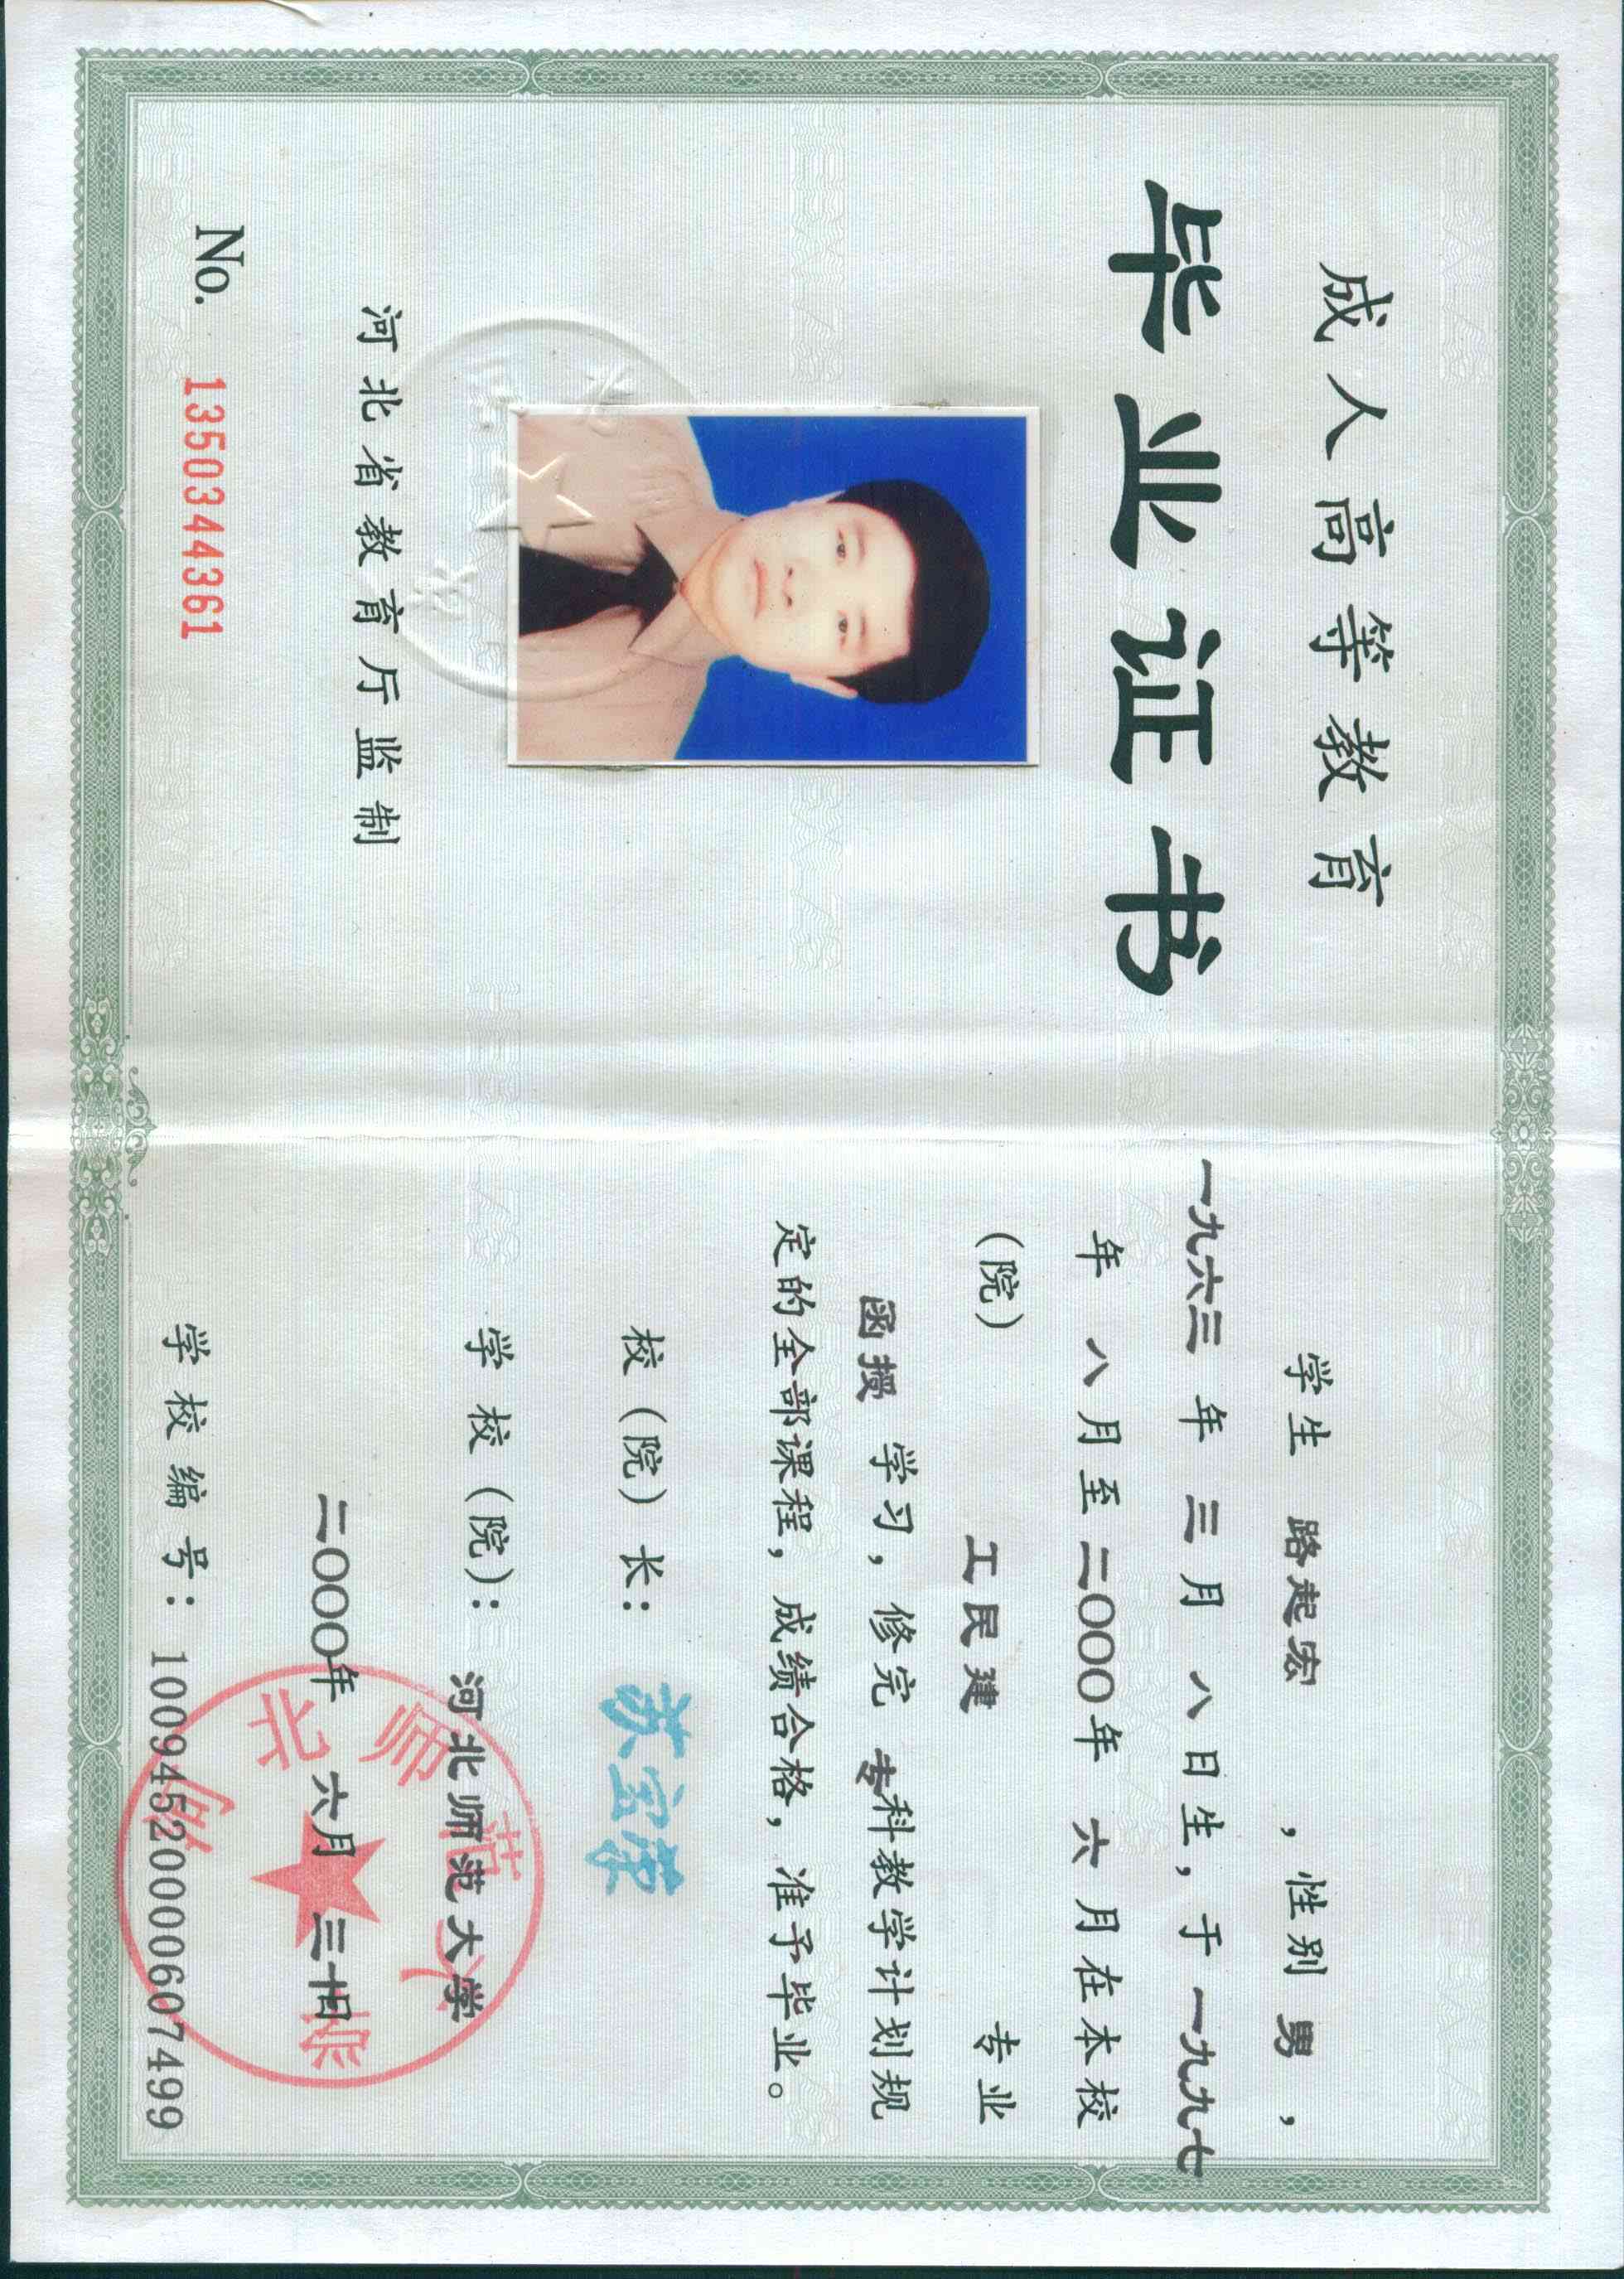 成人高等教育
毕业证书
河北省教育厅监制
No. 1350344361
学生 路起宏 ，性别 男，
一九六三年 三月 八日生，于一九九七
年 八月至二○○○年 六月在本校
（院） 工民建 专业
函授 学习，修完 专科教学计划规
定的全部课程，成绩合格，准予毕业。
校（院）长： 苏宝荣
学校（院）： 河北师范大学
二○○○年 六月 三十日
学校编号：100945200006074​99
河北师范大学